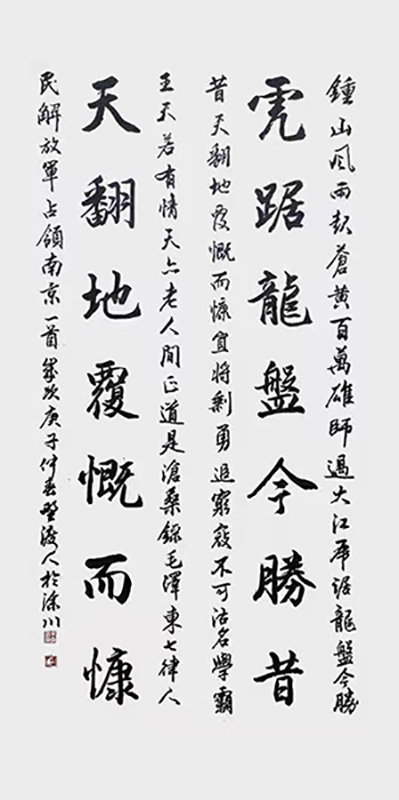 鍾山風雨起蒼黃百萬雄師過大江虎踞龍盤今勝
虎踞龍盤今勝昔
昔天翻地覆慨而慷宜將剩勇追窮寇不可沽名學霸
王天若有情天亦老人間正道是滄桑錄毛澤東七律人
天翻地覆慨而慷
民解放軍占領南京一首歲次庚子仲春野渡人於深川